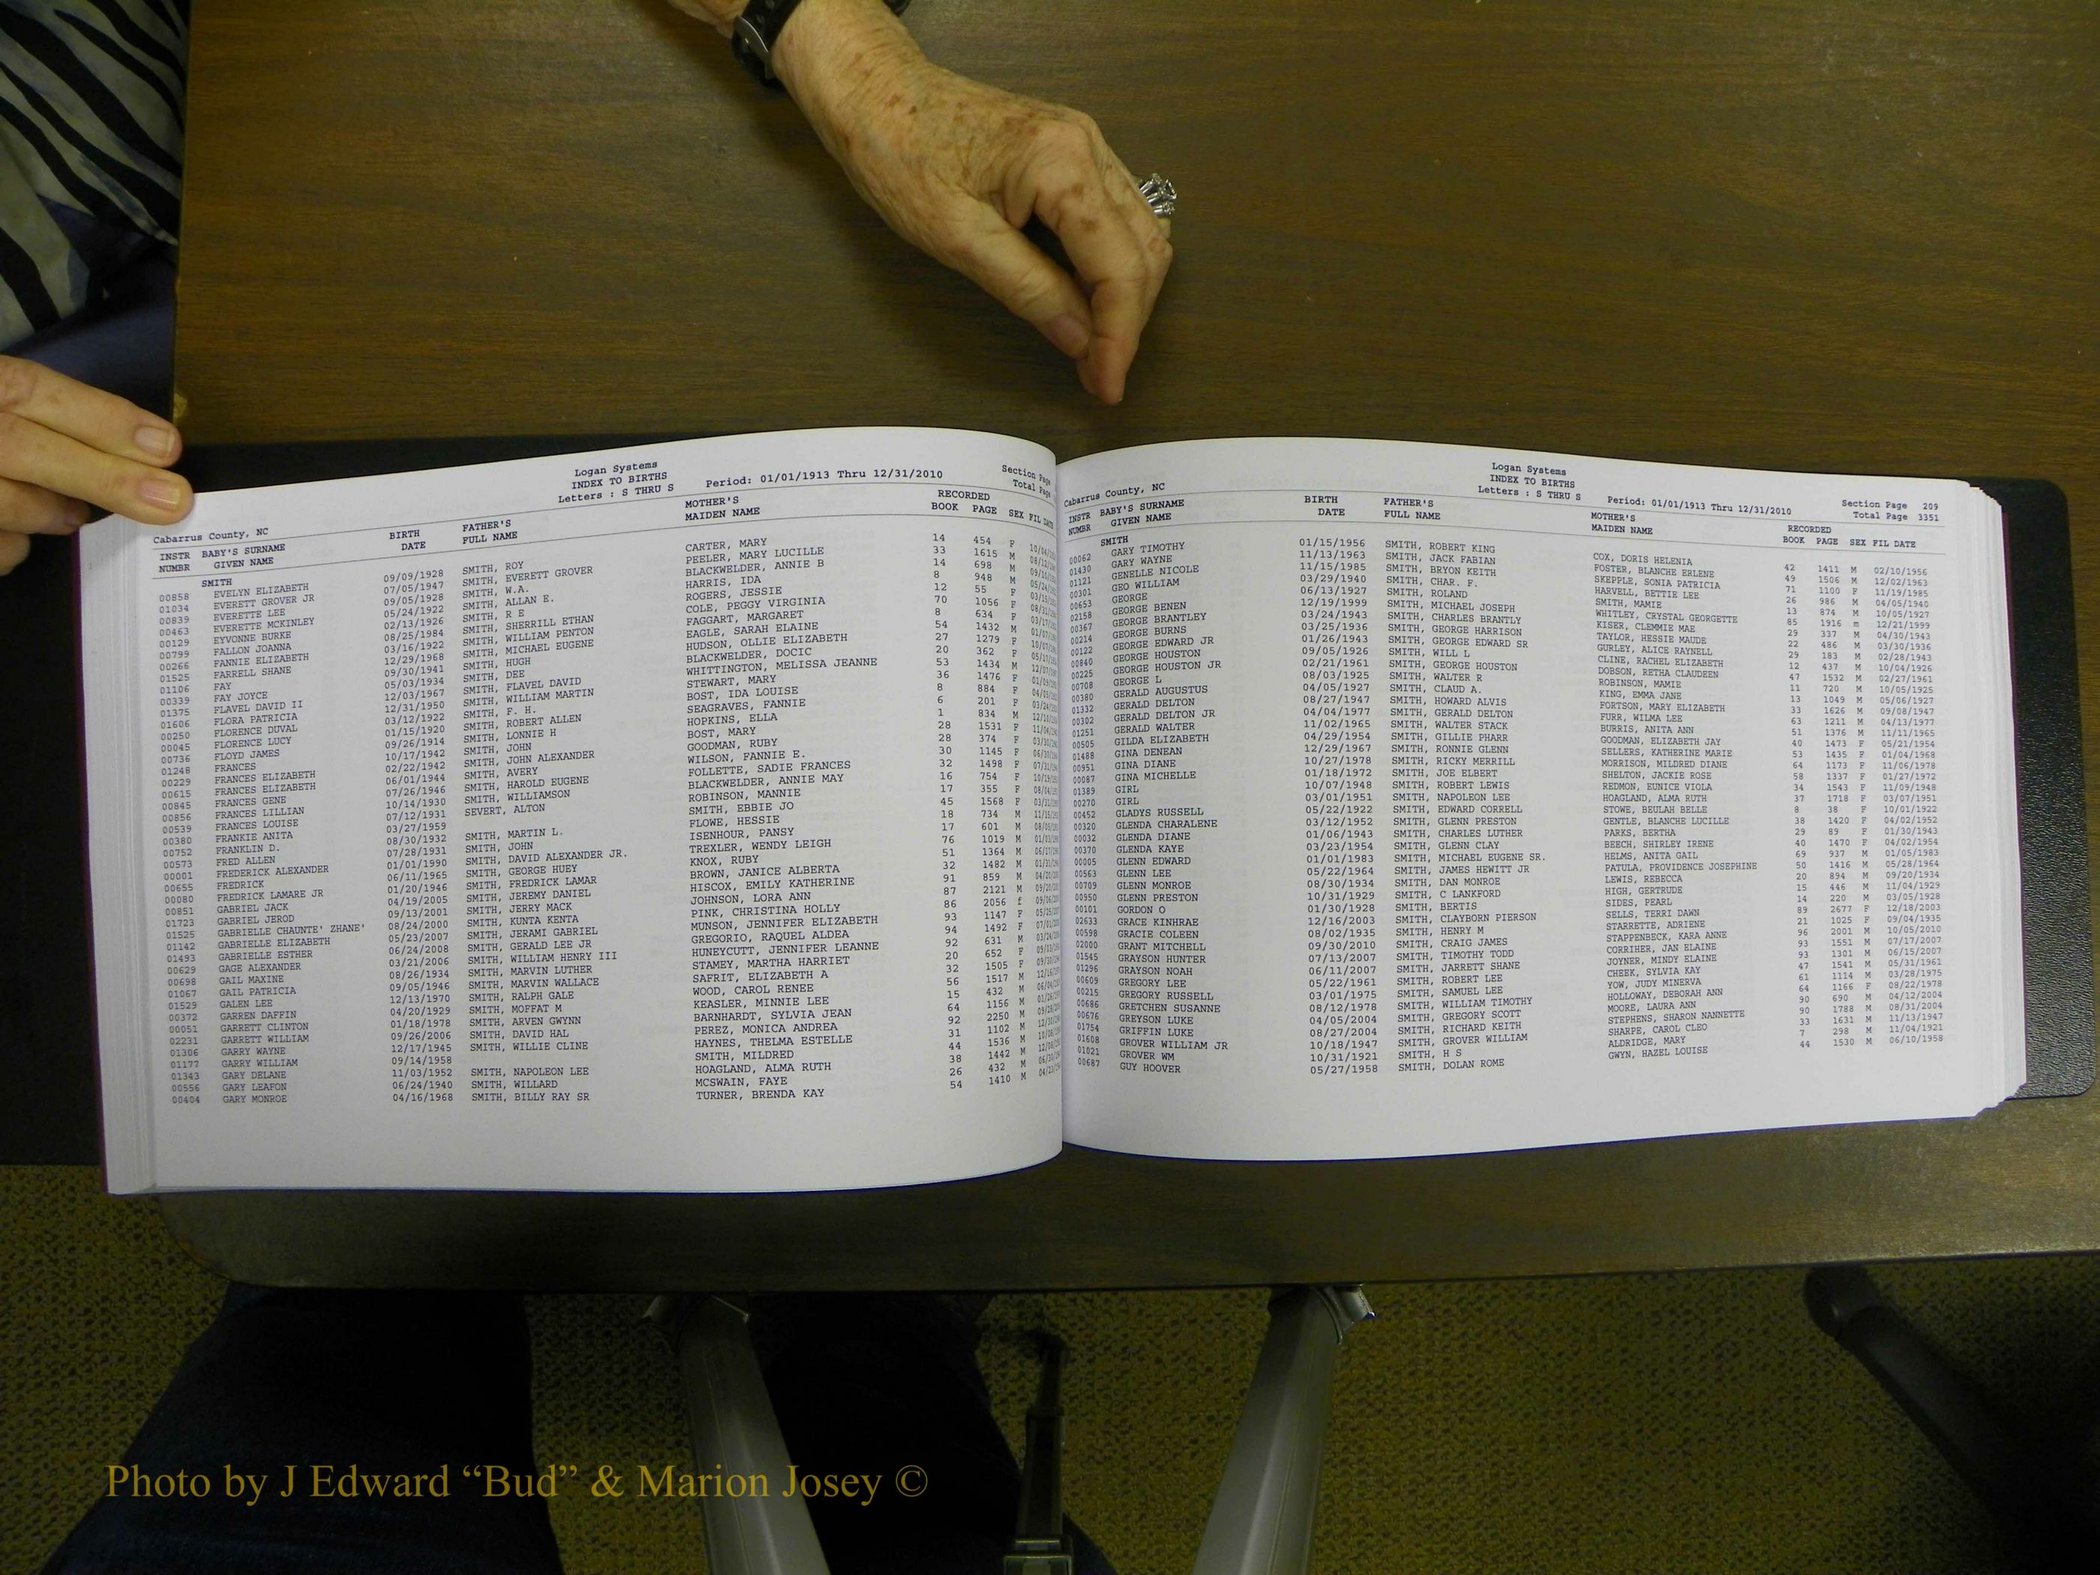 Logan Systems
INDEX TO BIRTHS
Letters : S THRU S Period: 01/01/1913 Thru 12/31/2010 Section Page
Total Page
Cabarrus County, NC
INSTR BABY'S SURNAME BIRTH FATHER'S MOTHER'S RECORDED
NUMBR GIVEN NAME DATE FULL NAME MAIDEN NAME BOOK PAGE SEX FIL DATE
SMITH
00858 EVELYN ELIZABETH 09/09/1928 SMITH, ROY CARTER, MARY 14 454 F
01034 EVERETT GROVER JR 07/05/1947 SMITH, EVERETT GROVER PEELER, MARY LUCILLE 33 1615 M
00839 EVERETTE LEE 09/05/1928 SMITH, W.A. BLACKWELDER, ANNIE B 14 698 M
00463 EVERETTE MCKINLEY 05/24/1922 SMITH, ALLAN E. HARRIS, IDA 8 948 M
00129 EYVONNE BURKE 02/13/1926 SMITH, R E ROGERS, JESSIE 12 55 F
00799 FALLON JOANNA 08/25/1984 SMITH, SHERRILL ETHAN COLE, PEGGY VIRGINIA 70 1056 F
00266 FANNIE ELIZABETH 03/16/1922 SMITH, WILLIAM PENTON FAGGART, MARGARET 8 634 F
01525 FARRELL SHANE 12/29/1968 SMITH, MICHAEL EUGENE EAGLE, SARAH ELAINE 54 1432 M
01106 FAY 09/30/1941 SMITH, HUGH HUDSON, OLLIE ELIZABETH 27 1279 F
00339 FAY JOYCE 05/03/1934 SMITH, DEE BLACKWELDER, DOCIC 20 362 F
01375 FLAVEL DAVID II 12/03/1967 SMITH, FLAVEL DAVID WHITTINGTON, MELISSA JEANNE 53 1434 M
01606 FLORA PATRICIA 12/31/1950 SMITH, WILLIAM MARTIN STEWART, MARY 36 1476 F
00250 FLORENCE DUVAL 03/12/1922 SMITH, F. H. BOST, IDA LOUISE 8 884 F
00045 FLORENCE LUCY 01/15/1920 SMITH, ROBERT ALLEN SEAGRAVES, FANNIE 6 201 F
00736 FLOYD JAMES 09/26/1914 SMITH, LONNIE H HOPKINS, ELLA 1 834 M
01248 FRANCES 10/17/1942 SMITH, JOHN BOST, MARY 28 1531 F
00229 FRANCES ELIZABETH 02/22/1942 SMITH, JOHN ALEXANDER GOODMAN, RUBY 28 374 F
00615 FRANCES ELIZABETH 06/01/1944 SMITH, AVERY WILSON, FANNIE E. 30 1145 F
00845 FRANCES GENE 07/26/1946 SMITH, HAROLD EUGENE FOLLETTE, SADIE FRANCES 32 1498 F
00856 FRANCES LILLIAN 10/14/1930 SMITH, WILLIAMSON BLACKWELDER, ANNIE MAY 16 754 F
00539 FRANCES LOUISE 07/12/1931 SEVERT, ALTON ROBINSON, MANNIE 17 355 F
00380 FRANKIE ANITA 03/27/1959 SMITH, EBBIE JO 45 1568 F
00752 FRANKLIN D. 08/30/1932 SMITH, MARTIN L. FLOWE, HESSIE 18 734 M
00573 FRED ALLEN 07/28/1931 SMITH, JOHN ISENHOUR, PANSY 17 601 M
00001 FREDERICK ALEXANDER 01/01/1990 SMITH, DAVID ALEXANDER JR. TREXLER, WENDY LEIGH 76 1019 M
00655 FREDRICK 06/11/1965 SMITH, GEORGE HUEY KNOX, RUBY 51 1364 M
00080 FREDRICK LAMARE JR 01/20/1946 SMITH, FREDRICK LAMAR BROWN, JANICE ALBERTA 32 1482 M
00851 GABRIEL JACK 04/19/2005 SMITH, JEREMY DANIEL HISCOX, EMILY KATHERINE 91 859 M
01723 GABRIEL JEROD 09/13/2001 SMITH, JERRY MACK JOHNSON, LORA ANN 87 2121 M
01525 GABRIELLE CHAUNTE' ZHANE' 08/24/2000 SMITH, KUNTA KENTA PINK, CHRISTINA HOLLY 86 2056 f
01142 GABRIELLE ELIZABETH 05/23/2007 SMITH, JERAMI GABRIEL MUNSON, JENNIFER ELIZABETH 93 1147 F
01493 GABRIELLE ESTHER 06/24/2008 SMITH, GERALD LEE JR GREGORIO, RAQUEL ALDEA 94 1492 F
00629 GAGE ALEXANDER 03/21/2006 SMITH, WILLIAM HENRY III HUNEYCUTT, JENNIFER LEANNE 92 631 M
00698 GAIL MAXINE 08/26/1934 SMITH, MARVIN LUTHER STAMEY, MARTHA HARRIET 20 652 F
01067 GAIL PATRICIA 09/05/1946 SMITH, MARVIN WALLACE SAFRIT, ELIZABETH A 32 1505 F
01529 GALEN LEE 12/13/1970 SMITH, RALPH GALE WOOD, CAROL RENEE 56 1517 M
00372 GARREN DAFFIN 04/20/1929 SMITH, MOFFAT M KEASLER, MINNIE LEE 15 432 M
00051 GARRETT CLINTON 01/18/1978 SMITH, ARVEN GWYNN BARNHARDT, SYLVIA JEAN 64 1156 M
02231 GARRETT WILLIAM 09/26/2006 SMITH, DAVID HAL PEREZ, MONICA ANDREA 92 2250 M
01306 GARRY WAYNE 12/17/1945 SMITH, WILLIE CLINE HAYNES, THELMA ESTELLE 31 1102 M
01177 GARRY WILLIAM 09/14/1958 SMITH, MILDRED 44 1536 M
01343 GARY DELANE 11/03/1952 SMITH, NAPOLEON LEE HOAGLAND, ALMA RUTH 38 1442 M
00556 GARY LEAFON 06/24/1940 SMITH, WILLARD MCSWAIN, FAYE 26 432 M
00404 GARY MONROE 04/16/1968 SMITH, BILLY RAY SR TURNER, BRENDA KAY 54 1410 M
Logan Systems
INDEX TO BIRTHS
Letters : S THRU S Period: 01/01/1913 Thru 12/31/2010 Section Page 209
Total Page 3351
Cabarrus County, NC
INSTR BABY'S SURNAME BIRTH FATHER'S MOTHER'S RECORDED
NUMBR GIVEN NAME DATE FULL NAME MAIDEN NAME BOOK PAGE SEX FIL DATE
SMITH
00062 GARY TIMOTHY 01/15/1956 SMITH, ROBERT KING COX, DORIS HELENIA 42 1411 M 02/10/1956
01430 GARY WAYNE 11/13/1963 SMITH, JACK FABIAN FOSTER, BLANCHE ERLENE 49 1506 M 12/02/1963
01121 GENELLE NICOLE 11/15/1985 SMITH, BRYON KEITH SKEPPLE, SONIA PATRICIA 71 1100 F 11/19/1985
00301 GEO WILLIAM 03/29/1940 SMITH, CHAR. F. HARVELL, BETTIE LEE 26 986 M 04/05/1940
00653 GEORGE 06/13/1927 SMITH, ROLAND SMITH, MAMIE 13 874 M 10/05/1927
02158 GEORGE BENEN 12/19/1999 SMITH, MICHAEL JOSEPH WHITLEY, CRYSTAL GEORGETTE 85 1916 m 12/21/1999
00367 GEORGE BRANTLEY 03/24/1943 SMITH, CHARLES BRANTLY KISER, CLEMMIE MAE 29 337 M 04/30/1943
00214 GEORGE BURNS 03/25/1936 SMITH, GEORGE HARRISON TAYLOR, HESSIE MAUDE 22 486 M 03/30/1936
00122 GEORGE EDWARD JR 01/26/1943 SMITH, GEORGE EDWARD SR GURLEY, ALICE RAYNELL 29 183 M 02/28/1943
00840 GEORGE HOUSTON 09/05/1926 SMITH, WILL L CLINE, RACHEL ELIZABETH 12 437 M 10/04/1926
00225 GEORGE HOUSTON JR 02/21/1961 SMITH, GEORGE HOUSTON DOBSON, RETHA CLAUDEEN 47 1532 M 02/27/1961
00708 GEORGE L 08/03/1925 SMITH, WALTER R ROBINSON, MAMIE 11 720 M 10/05/1925
00380 GERALD AUGUSTUS 04/05/1927 SMITH, CLAUD A. KING, EMMA JANE 13 1049 M 05/06/1927
01332 GERALD DELTON 08/27/1947 SMITH, HOWARD ALVIS FORTSON, MARY ELIZABETH 33 1626 M 09/08/1947
00302 GERALD DELTON JR 04/04/1977 SMITH, GERALD DELTON FURR, WILMA LEE 63 1211 M 04/13/1977
01251 GERALD WALTER 11/02/1965 SMITH, WALTER STACK BURRIS, ANITA ANN 51 1376 M 11/11/1965
00505 GILDA ELIZABETH 04/29/1954 SMITH, GILLIE PHARR GOODMAN, ELIZABETH JAY 40 1473 F 05/21/1954
01488 GINA DENEAN 12/29/1967 SMITH, RONNIE GLENN SELLERS, KATHERINE MARIE 53 1435 F 01/04/1968
00951 GINA DIANE 10/27/1978 SMITH, RICKY MERRILL MORRISON, MILDRED DIANE 64 1173 F 11/06/1978
00087 GINA MICHELLE 01/18/1972 SMITH, JOE ELBERT SHELTON, JACKIE ROSE 58 1337 F 01/27/1972
01389 GIRL 10/07/1948 SMITH, ROBERT LEWIS REDMON, EUNICE VIOLA 34 1543 F 11/09/1948
00270 GIRL 03/01/1951 SMITH, NAPOLEON LEE HOAGLAND, ALMA RUTH 37 1718 F 03/07/1951
00452 GLADYS RUSSELL 05/22/1922 SMITH, EDWARD CORRELL STOWE, BEULAH BELLE 8 38 F 10/01/1922
00320 GLENDA CHARALENE 03/12/1952 SMITH, GLENN PRESTON GENTLE, BLANCHE LUCILLE 38 1420 F 04/02/1952
00032 GLENDA DIANE 01/06/1943 SMITH, CHARLES LUTHER PARKS, BERTHA 29 89 F 01/30/1943
00370 GLENDA KAYE 03/23/1954 SMITH, GLENN CLAY BEECH, SHIRLEY IRENE 40 1470 F 04/02/1954
00005 GLENN EDWARD 01/01/1983 SMITH, MICHAEL EUGENE SR. HELMS, ANITA GAIL 69 937 M 01/05/1983
00563 GLENN LEE 05/22/1964 SMITH, JAMES HEWITT JR PATULA, PROVIDENCE JOSEPHINE 50 1416 M 05/28/1964
00709 GLENN MONROE 08/30/1934 SMITH, DAN MONROE LEWIS, REBECCA 20 894 M 09/20/1934
00950 GLENN PRESTON 10/31/1929 SMITH, C LANKFORD HIGH, GERTRUDE 15 446 M 11/04/1929
00101 GORDON O 01/30/1928 SMITH, BERTIS SIDES, PEARL 14 220 M 03/05/1928
02633 GRACE KINHRAE 12/16/2003 SMITH, CLAYBORN PIERSON SELLS, TERRI DAWN 89 2677 F 12/18/2003
00598 GRACIE COLEEN 08/02/1935 SMITH, HENRY M STARRETTE, ADRIENE 21 1025 F 09/04/1935
02000 GRANT MITCHELL 09/30/2010 SMITH, CRAIG JAMES STAPPENBECK, KARA ANNE 96 2001 M 10/05/2010
01545 GRAYSON HUNTER 07/13/2007 SMITH, TIMOTHY TODD CORRIHER, JAN ELAINE 93 1551 M 07/17/2007
01296 GRAYSON NOAH 06/11/2007 SMITH, JARRETT SHANE JOYNER, MINDY ELAINE 93 1301 M 06/15/2007
00609 GREGORY LEE 05/22/1961 SMITH, ROBERT LEE CHEEK, SYLVIA KAY 47 1541 M 05/31/1961
00215 GREGORY RUSSELL 03/01/1975 SMITH, SAMUEL LEE YOW, JUDY MINERVA 61 1114 M 03/28/1975
00686 GRETCHEN SUSANNE 08/12/1978 SMITH, WILLIAM TIMOTHY HOLLOWAY, DEBORAH ANN 64 1166 F 08/22/1978
00676 GREYSON LUKE 04/05/2004 SMITH, GREGORY SCOTT MOORE, LAURA ANN 90 690 M 04/12/2004
01754 GRIFFIN LUKE 08/27/2004 SMITH, RICHARD KEITH STEPHENS, SHARON NANNETTE 90 1788 M 08/31/2004
01608 GROVER WILLIAM JR 10/18/1947 SMITH, GROVER WILLIAM SHARPE, CAROL CLEO 33 1631 M 11/13/1947
01021 GROVER WM 10/31/1921 SMITH, H S ALDRIDGE, MARY 7 298 M 11/04/1921
00687 GUY HOOVER 05/27/1958 SMITH, DOLAN ROME GWYN, HAZEL LOUISE 44 1530 M 06/10/1958
Photo by J Edward “Bud” & Marion Josey ©